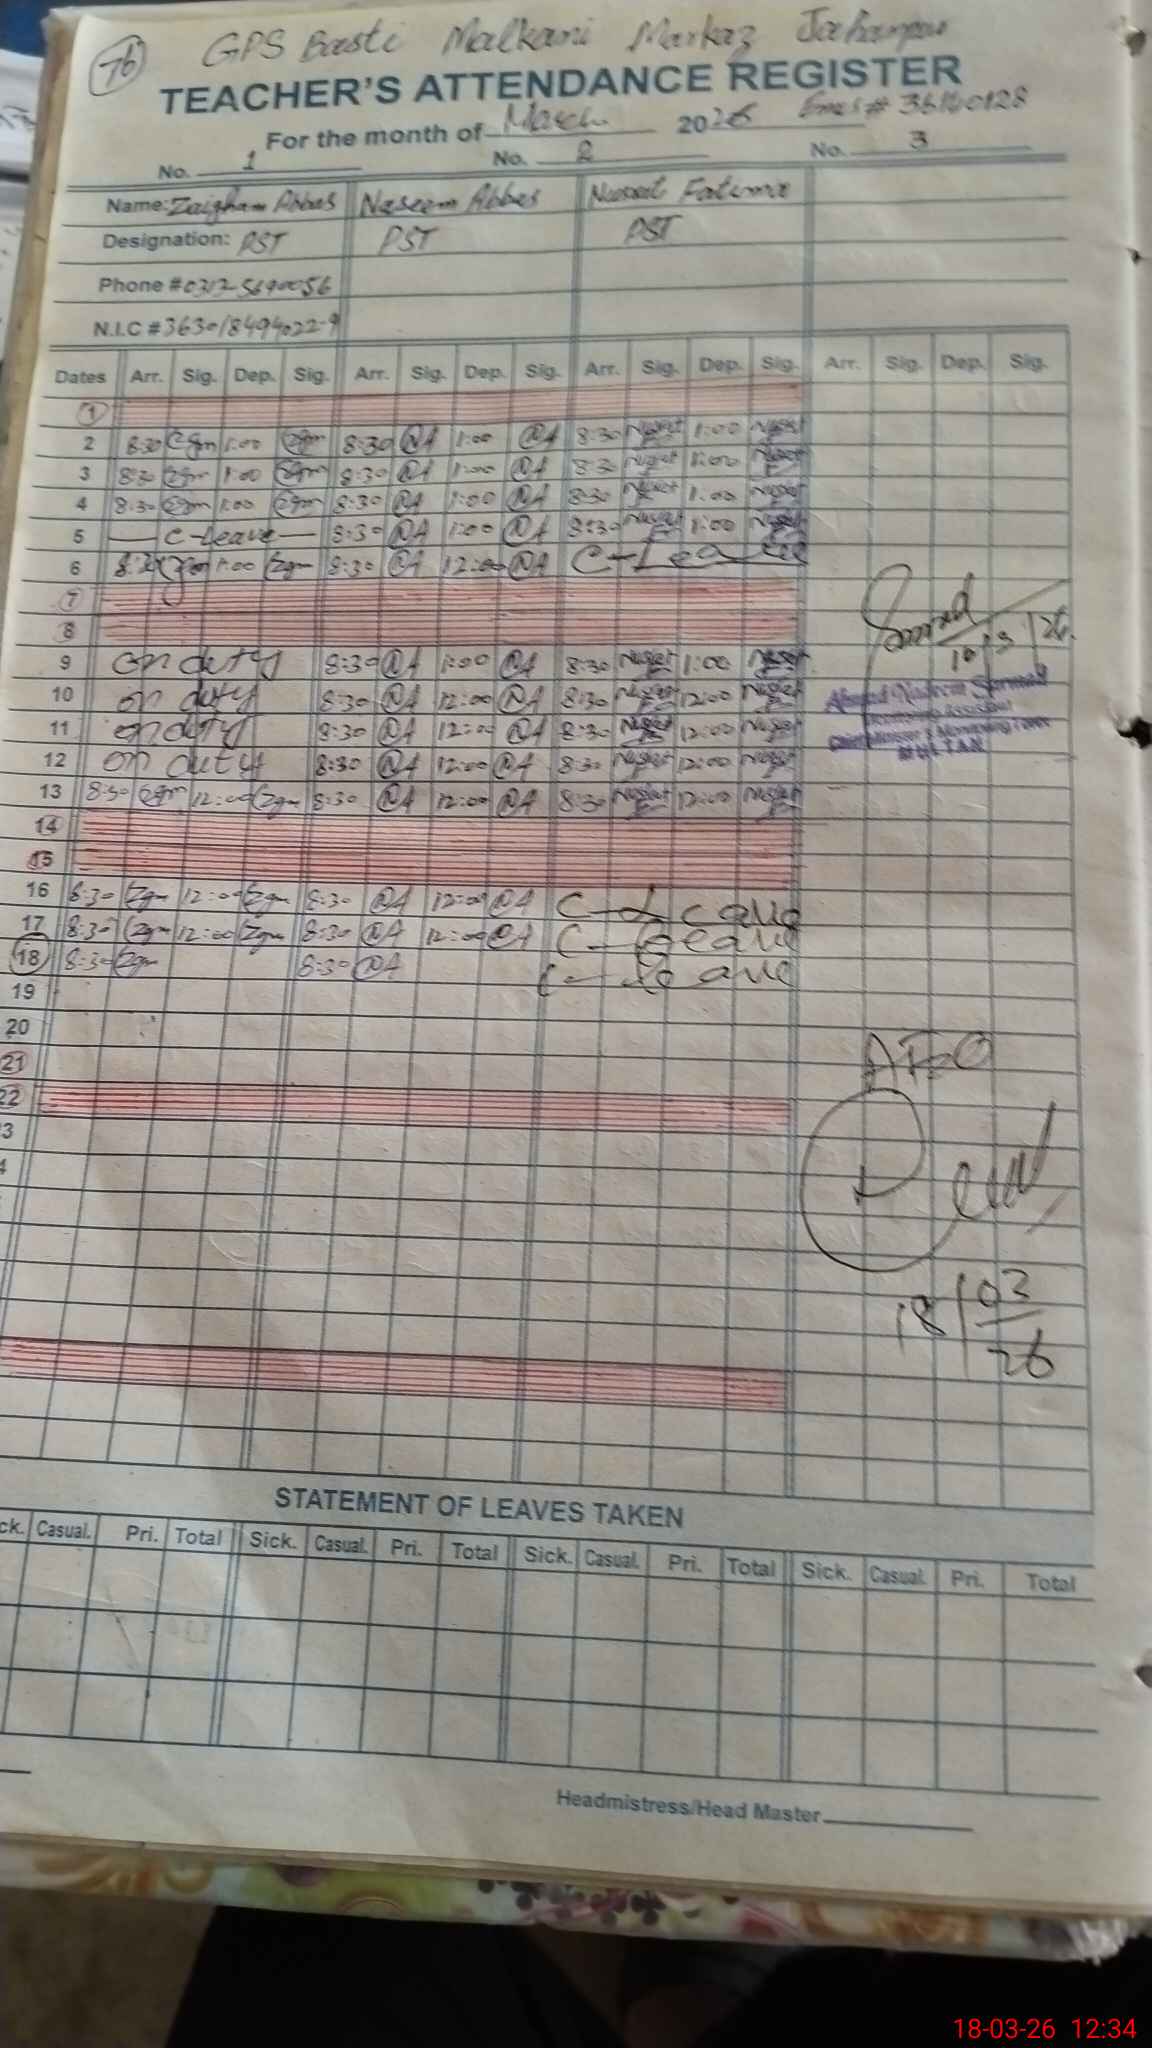 76
GPS Basti Malkani Markaz Jahanpur
TEACHER'S ATTENDANCE REGISTER
For the month of March 2026 Emis # 36140128
No. 1 No. 2 No. 3
Name: Zaigham Abbas Naseem Abbas Nusrat Fatima
Designation: PST PST PST
Phone #
N.I.C #
Dates Arr. Sig. Dep. Sig. Arr. Sig. Dep. Sig. Arr. Sig. Dep. Sig. Arr. Sig. Dep. Sig.
1
2 8:30 Zgm 1:00 Zgm 8:30 NA 1:00 NA 8:30 Nusrat 1:00 Nusrat
3 8:30 Zgm 1:00 Zgm 8:30 NA 1:00 NA 8:30 Nusrat 1:00 Nusrat
4 8:30 Zgm 1:00 Zgm 8:30 NA 1:00 NA 8:30 Nusrat 1:00 Nusrat
5 — C-Leave — 8:30 NA 1:00 NA 8:30 Nusrat 1:00 Nusrat
6 8:30 Zgm 1:00 Zgm 8:30 NA 12:00 NA C-Leave
7
8
9 on duty 8:30 NA 1:00 NA 8:30 Nusrat 1:00 Nusrat
10 on duty 8:30 NA 12:00 NA 8:30 Nusrat 12:00 Nusrat
11 on duty 8:30 NA 12:00 NA 8:30 Nusrat 12:00 Nusrat
12 on duty 8:30 NA 12:00 NA 8:30 Nusrat 12:00 Nusrat
13 8:30 Zgm 12:00 Zgm 8:30 NA 12:00 NA 8:30 Nusrat 12:00 Nusrat
14
15
16 8:30 Zgm 12:00 Zgm 8:30 NA 12:00 NA C-Leave
17 8:30 Zgm 12:00 Zgm 8:30 NA 12:00 NA C-Leave
18 8:30 Zgm 8:30 NA C-Leave
19
20
21
22
3
4
Sarmad
10/3/26
Ahmad Nadeem Sarmad
Monitoring Assistant
Chief Minister's Monitoring Force
MULTAN
AEO
18/03/26
STATEMENT OF LEAVES TAKEN
ck. Casual. Pri. Total Sick. Casual. Pri. Total Sick. Casual. Pri. Total Sick. Casual. Pri. Total
Headmistress/Head Master
18-03-26 12:34